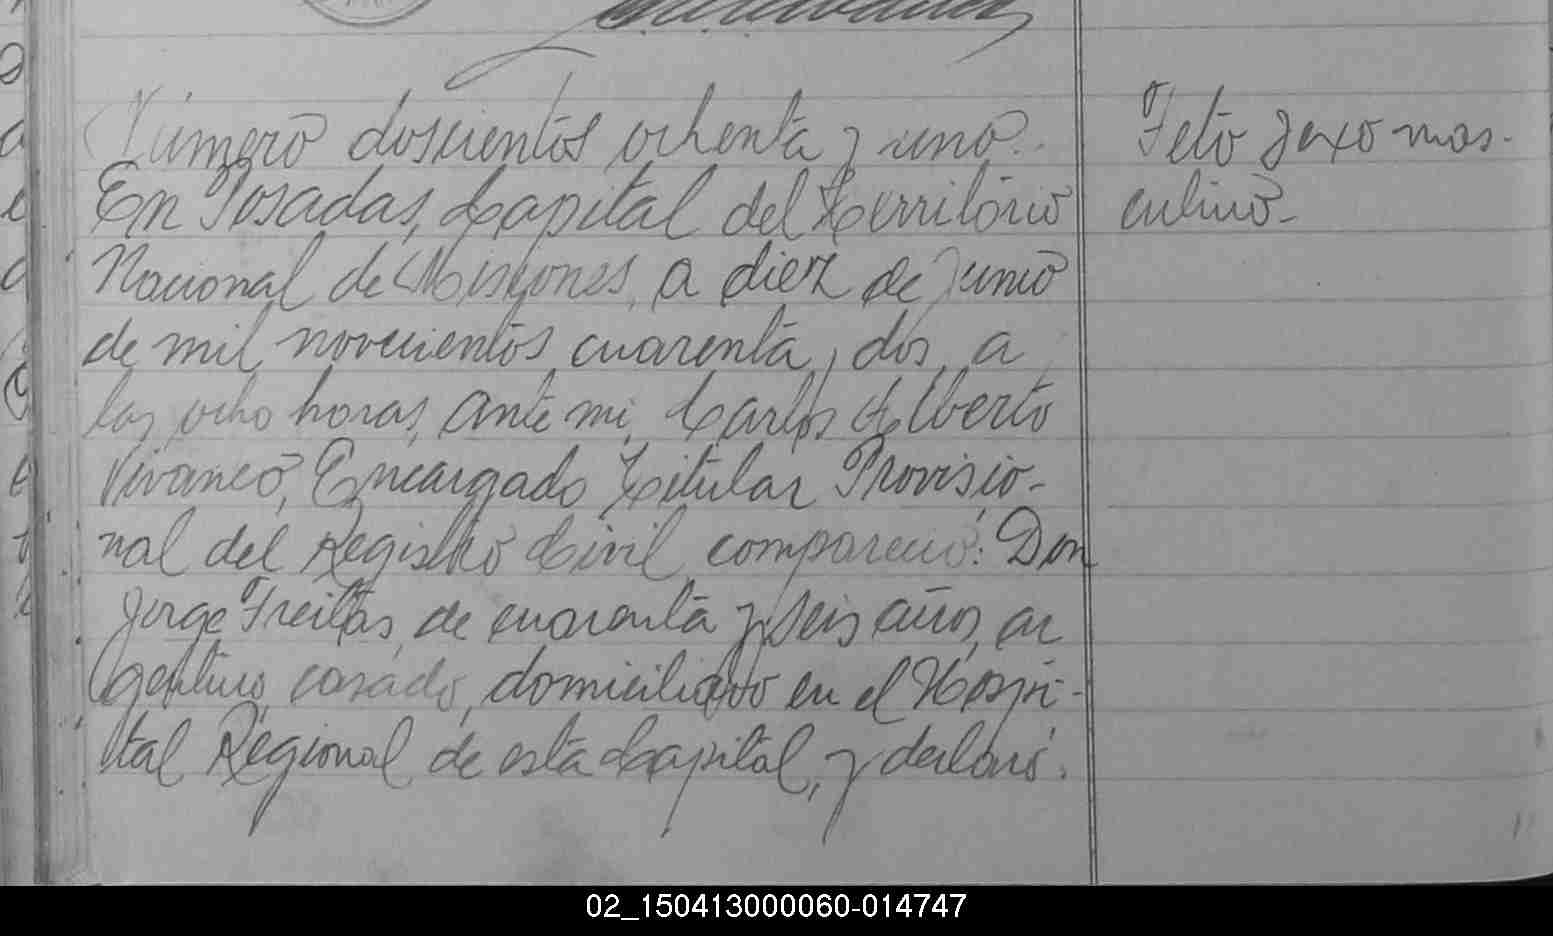 Número doscientos ochenta y uno.
En Posadas, Capital del Territorio
Nacional de Misiones, a diez de Junio
de mil novecientos cuarenta y dos, a
las ocho horas, ante mi, Carlos Alberto
Vivanco, Encargado Titular Provisio-
nal del Registro Civil compareció: Don
Jorge Freitas, de cuarenta y seis años, ar
gentino, casado, domiciliado en el Hospi-
tal Regional de esta Capital, y declaró:
Feto sexo mas-
culino-
02_150413000060-014747